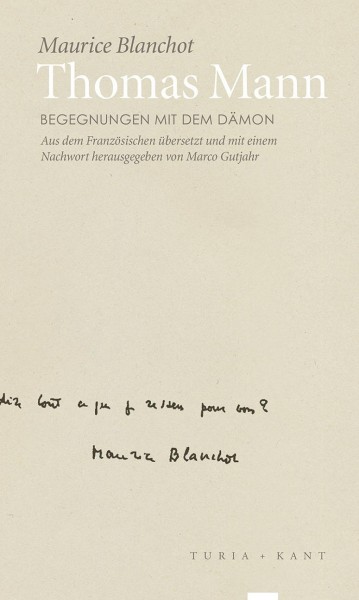 Maurice Blanchot
Thomas Mann
BEGEGNUNGEN MIT DEM DÄMON
Aus dem Französischen übersetzt und mit einem
Nachwort herausgegeben von Marco Gutjahr
tout ce que je pour vous?
Maurice Blanchot
TURIA + KANT